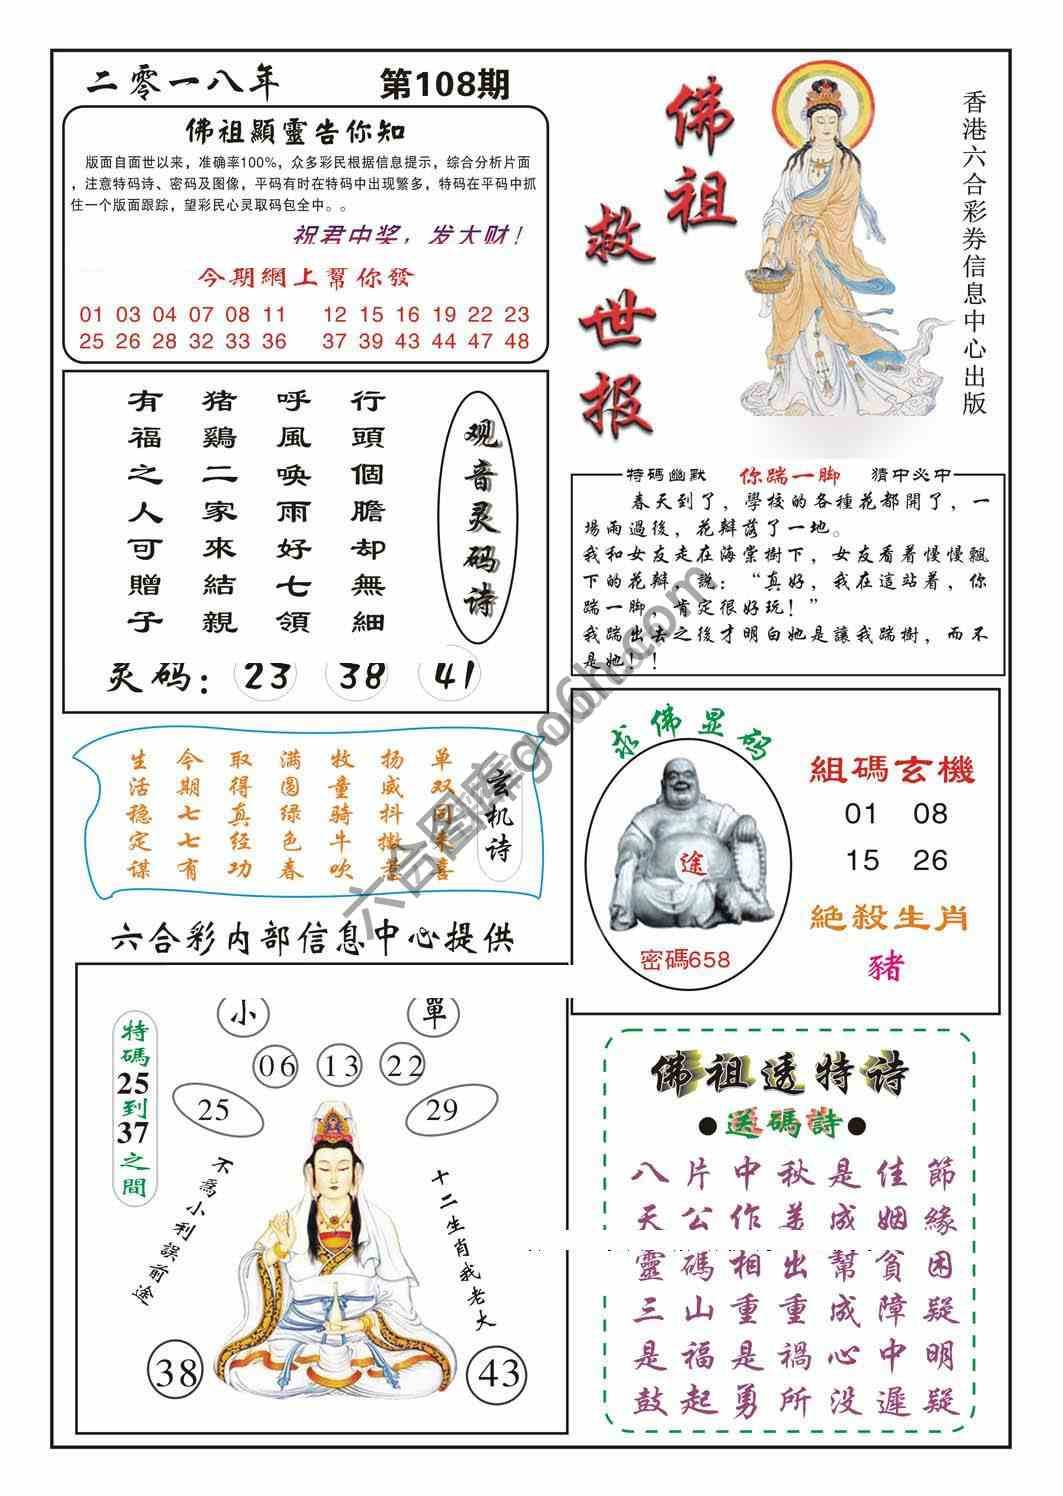 二零一八年
第108期
佛祖顯靈告你知
版面自面世以来，准确率100%，众多彩民根据信息提示，综合分析片面
，注意特码诗、密码及图像，平码有时在特码中出现繁多，特码在平码中抓
住一个版面跟踪，望彩民心灵取码包全中。。
祝君中奖，发大财！
今期網上幫你發
01 03 04 07 08 11 12 15 16 19 22 23
25 26 28 32 33 36 37 39 43 44 47 48
佛祖
救世报
香港六合彩券信息中心出版
观音灵码诗
行頭個膽却無細
呼風喚雨好七領
猪鷄二家來結親
有福之人可贈子
灵码：23 38 41
特碼幽默 你踹一脚 猜中必中
春天到了，學校的各種花都開了，一
場雨過後，花辩落了一地。
我和女友走在海棠樹下，女友看着慢慢飄
下的花辩，説：“真好，我在這站着，你
踹一脚，肯定很好玩！”
我踹出去之後才明白她是讓我踹樹，而不
是她！！
玄机诗
单双同来喜
扬威抖擞
牧童骑牛吹
满圆绿色春
取得真经功
今期七七有
生活稳定谋
求佛显码
途
密碼658
組碼玄機
01 08
15 26
絶殺生肖
豬
六合彩内部信息中心提供
小 單
06 13 22
25 29
特碼25到37之間
不爲小利誤前途
十二生肖我老大
38 43
佛祖透特诗
●送碼詩●
八片中秋是佳節
天公作美成姻緣
靈碼相出幫貧困
三山重重成障疑
是福是禍心中明
鼓起勇所没遲疑
六合图库go6h.com